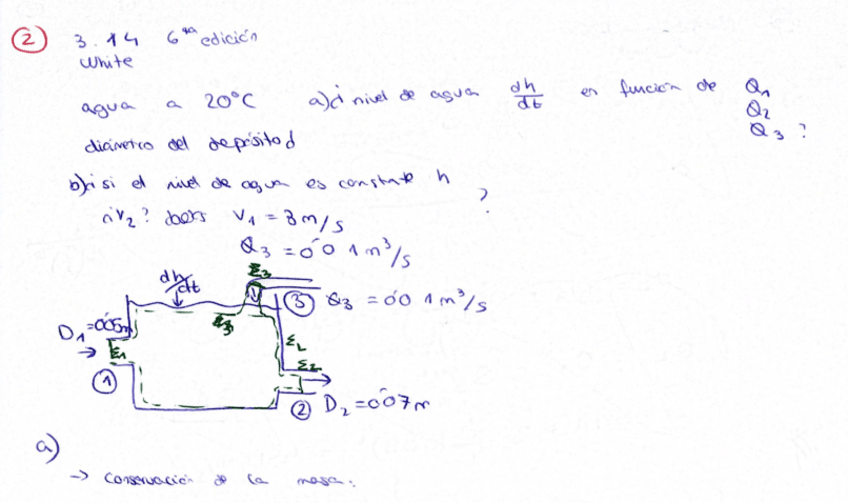 ② 3.14 6ta edición
White
agua a 20°C a) ¿ nivel de agua dh/dt en función de Q1
Q2
Q3 ?
diámetro del depósito d
b) ¿ si el nivel de agua es constante h ?
¿ V2? datos V1 = 3 m/s
Q3 = 0'01 m³/s
dh/dt
Σ3
③ Q3 = 0'01 m³/s
D1 = 0'05m
Σ1
ΣL
Σ2
①
② D2 = 0'07 m
a)
→ Conservación de la masa: